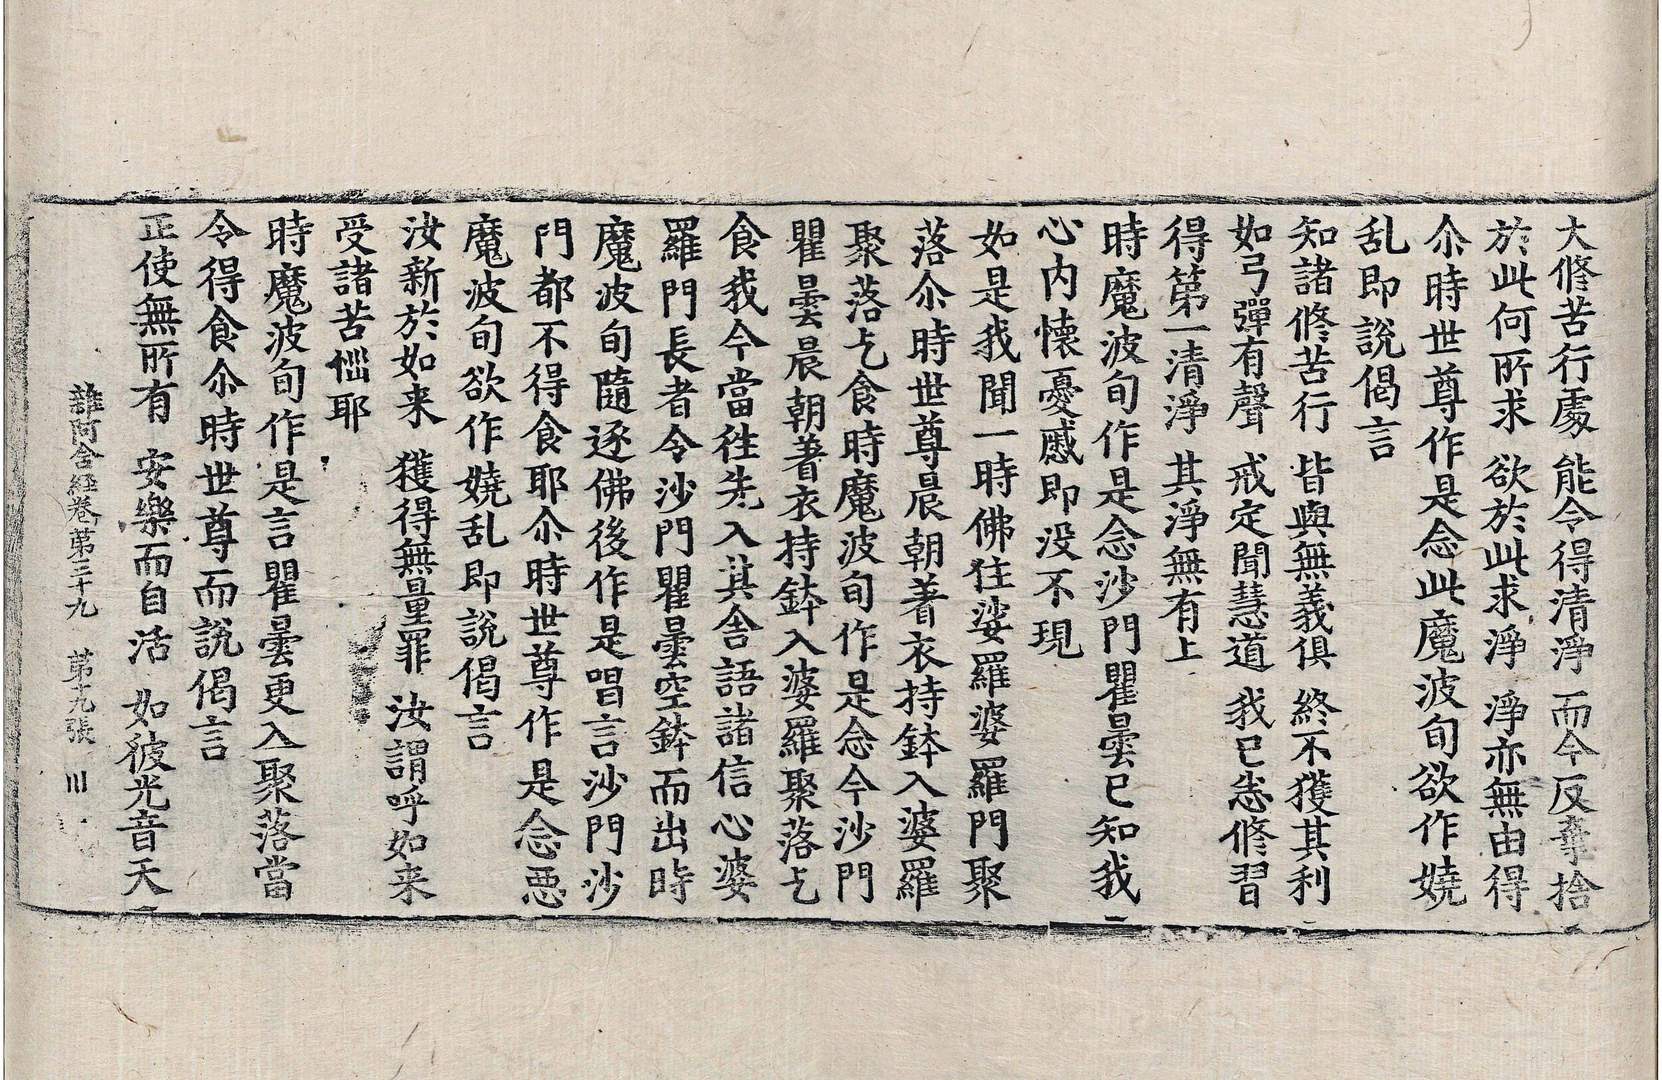 大修苦行處 能令得清淨 而今反棄捨
於此何所求 欲於此求淨 淨亦無由得
尒時世尊作是念此魔波旬欲作嬈
乱即說偈言
知諸修苦行 皆與無義俱 終不獲其利
如弓彈有聲 戒定聞慧道 我已悉修習
得第一清淨 其淨無有上
時魔波旬作是念沙門瞿曇已知我
心內懷憂慼即没不現
如是我聞一時佛住娑羅婆羅門聚
落尒時世尊晨朝著衣持鉢入婆羅
聚落乞食時魔波旬作是念今沙門
瞿曇晨朝著衣持鉢入婆羅聚落乞
食我今當往先入其舍語諸信心婆
羅門長者令沙門瞿曇空鉢而出時
魔波旬隨逐佛後作是唱言沙門沙
門都不得食耶尒時世尊作是念惡
魔波旬欲作嬈乱即說偈言
汝新於如来 獲得無量罪 汝謂呼如来
受諸苦惱耶
時魔波旬作是言瞿曇更入聚落當
令得食尒時世尊而說偈言
正使無所有 安樂而自活 如彼光音天
雜阿含經卷第三十九 第十九張 川